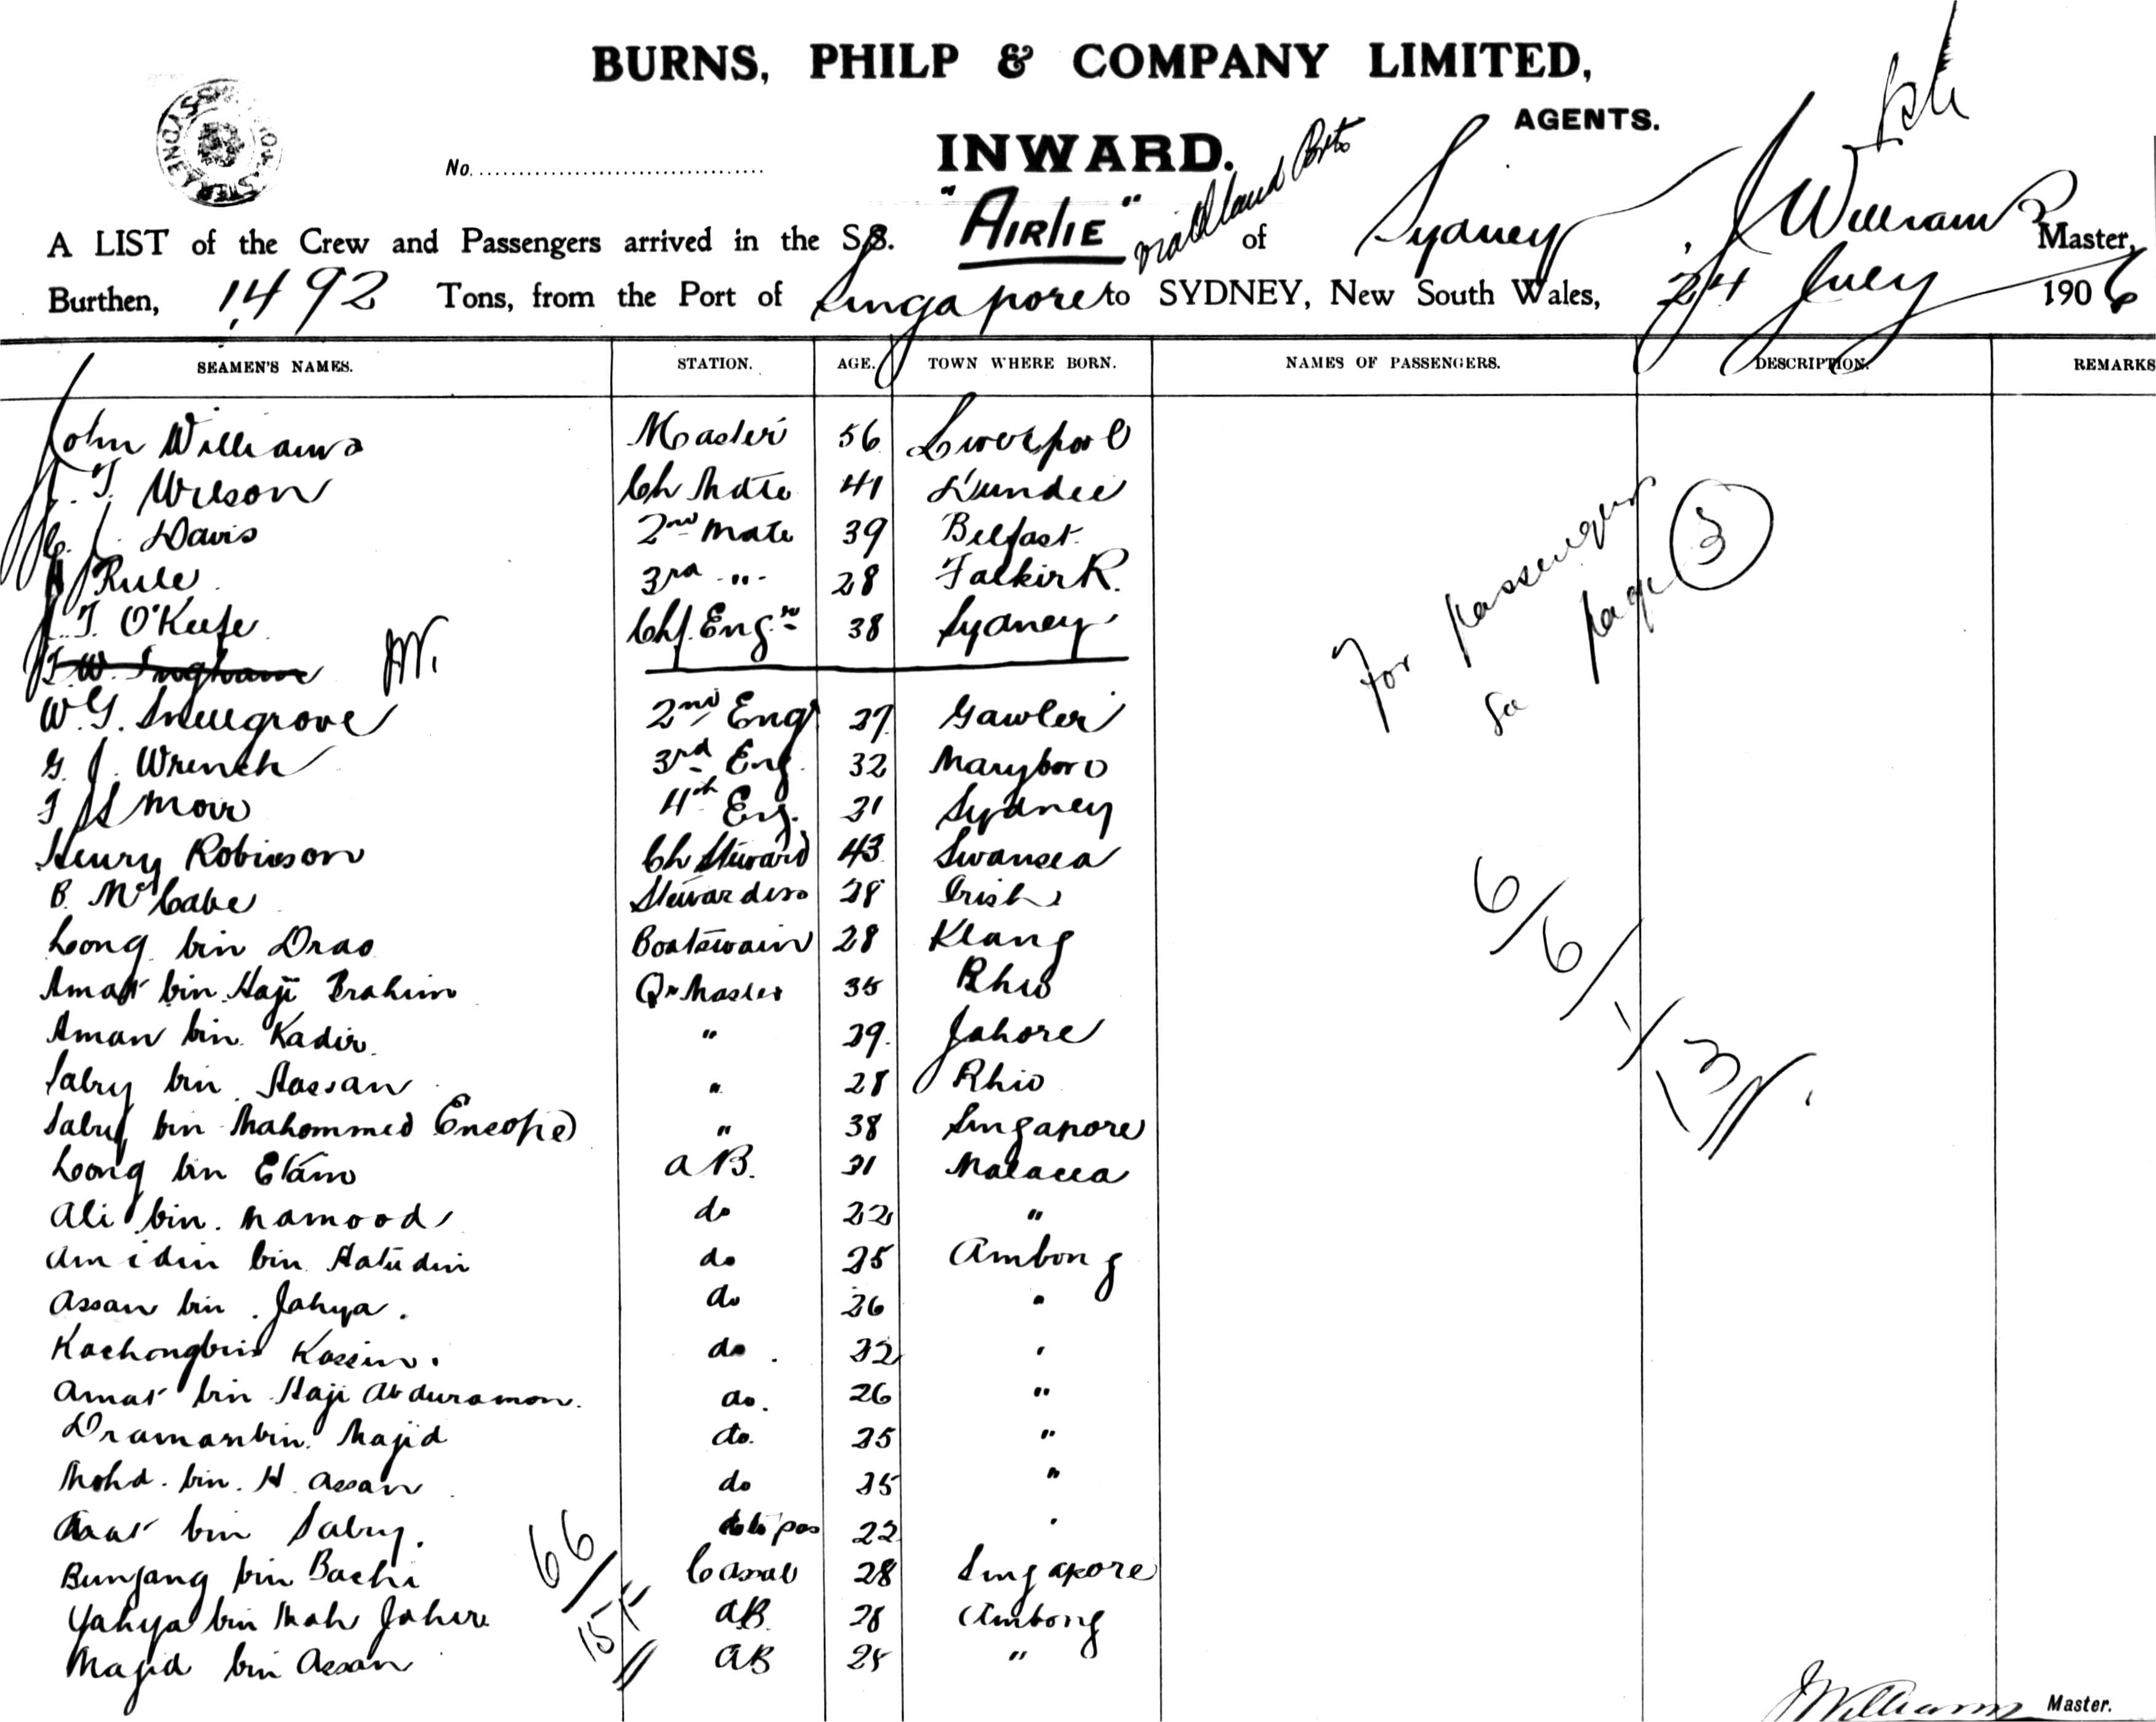 BURNS, PHILP & COMPANY LIMITED,
AGENTS.
INWARD.
No.
A LIST of the Crew and Passengers arrived in the S.S. "AIRLIE" of Sydney, J Williams Master,
Burthen, 1,492 Tons, from the Port of Singapore to SYDNEY, New South Wales, 24 July 1906
SEAMEN'S NAMES. STATION. AGE. TOWN WHERE BORN. NAMES OF PASSENGERS. DESCRIPTION. REMARKS
John Williams Master 56 Liverpool
J. T. Wilson Ch Mate 41 Dundee
Davis 2nd Mate 39 Belfast.
Rule 3rd " 28 Falkirk.
J. T. O'Keefe Chf. Engr 38 Sydney
T W Ingham JW.
W. G. Snellgrove 2nd Engr 27 Gawler
G. J. Wrench 3rd Eng. 32 Maryboro
Moir 4th Eng. 31 Sydney
Henry Robinson Ch Steward 43 Swansea
B. McCabe Stewardess 28 Irish
Long bin Drao Boatswain 28 Klang
Amat bin Haji Brahim Qr Master 35 Rhio
Aman bin Kadir " 29 Johore
Salry bin Hassan " 28 Rhio
Salry bin Mahommed " 38 Singapore
Long bin Etam AB. 31 Malacca
Ali bin Mamood do 22 "
Amidin bin Hatudin do 25 Ambong
Assan bin Jahya. do 26 "
Kachong bin Kassim. do. 32 "
Amat bin Haji Abduramon. do. 26 "
Draman bin Majid do. 25 "
Mohd. bin. H. Assan do 25 "
bin Salry. 22 "
Bungang bin Bachi Cassab 28 Singapore
Yahya bin Mah Johir AB 28 Ambong
Majid bin Assan AB 25 "
For passengers
see page 3
6/6/-
13
66/
15/-
J Williams Master.